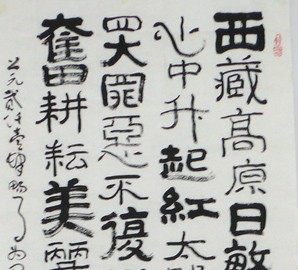 西藏高原日
心中升起紅太
四大罪惡不復
奮耕耘美麗
公元貳仟壹